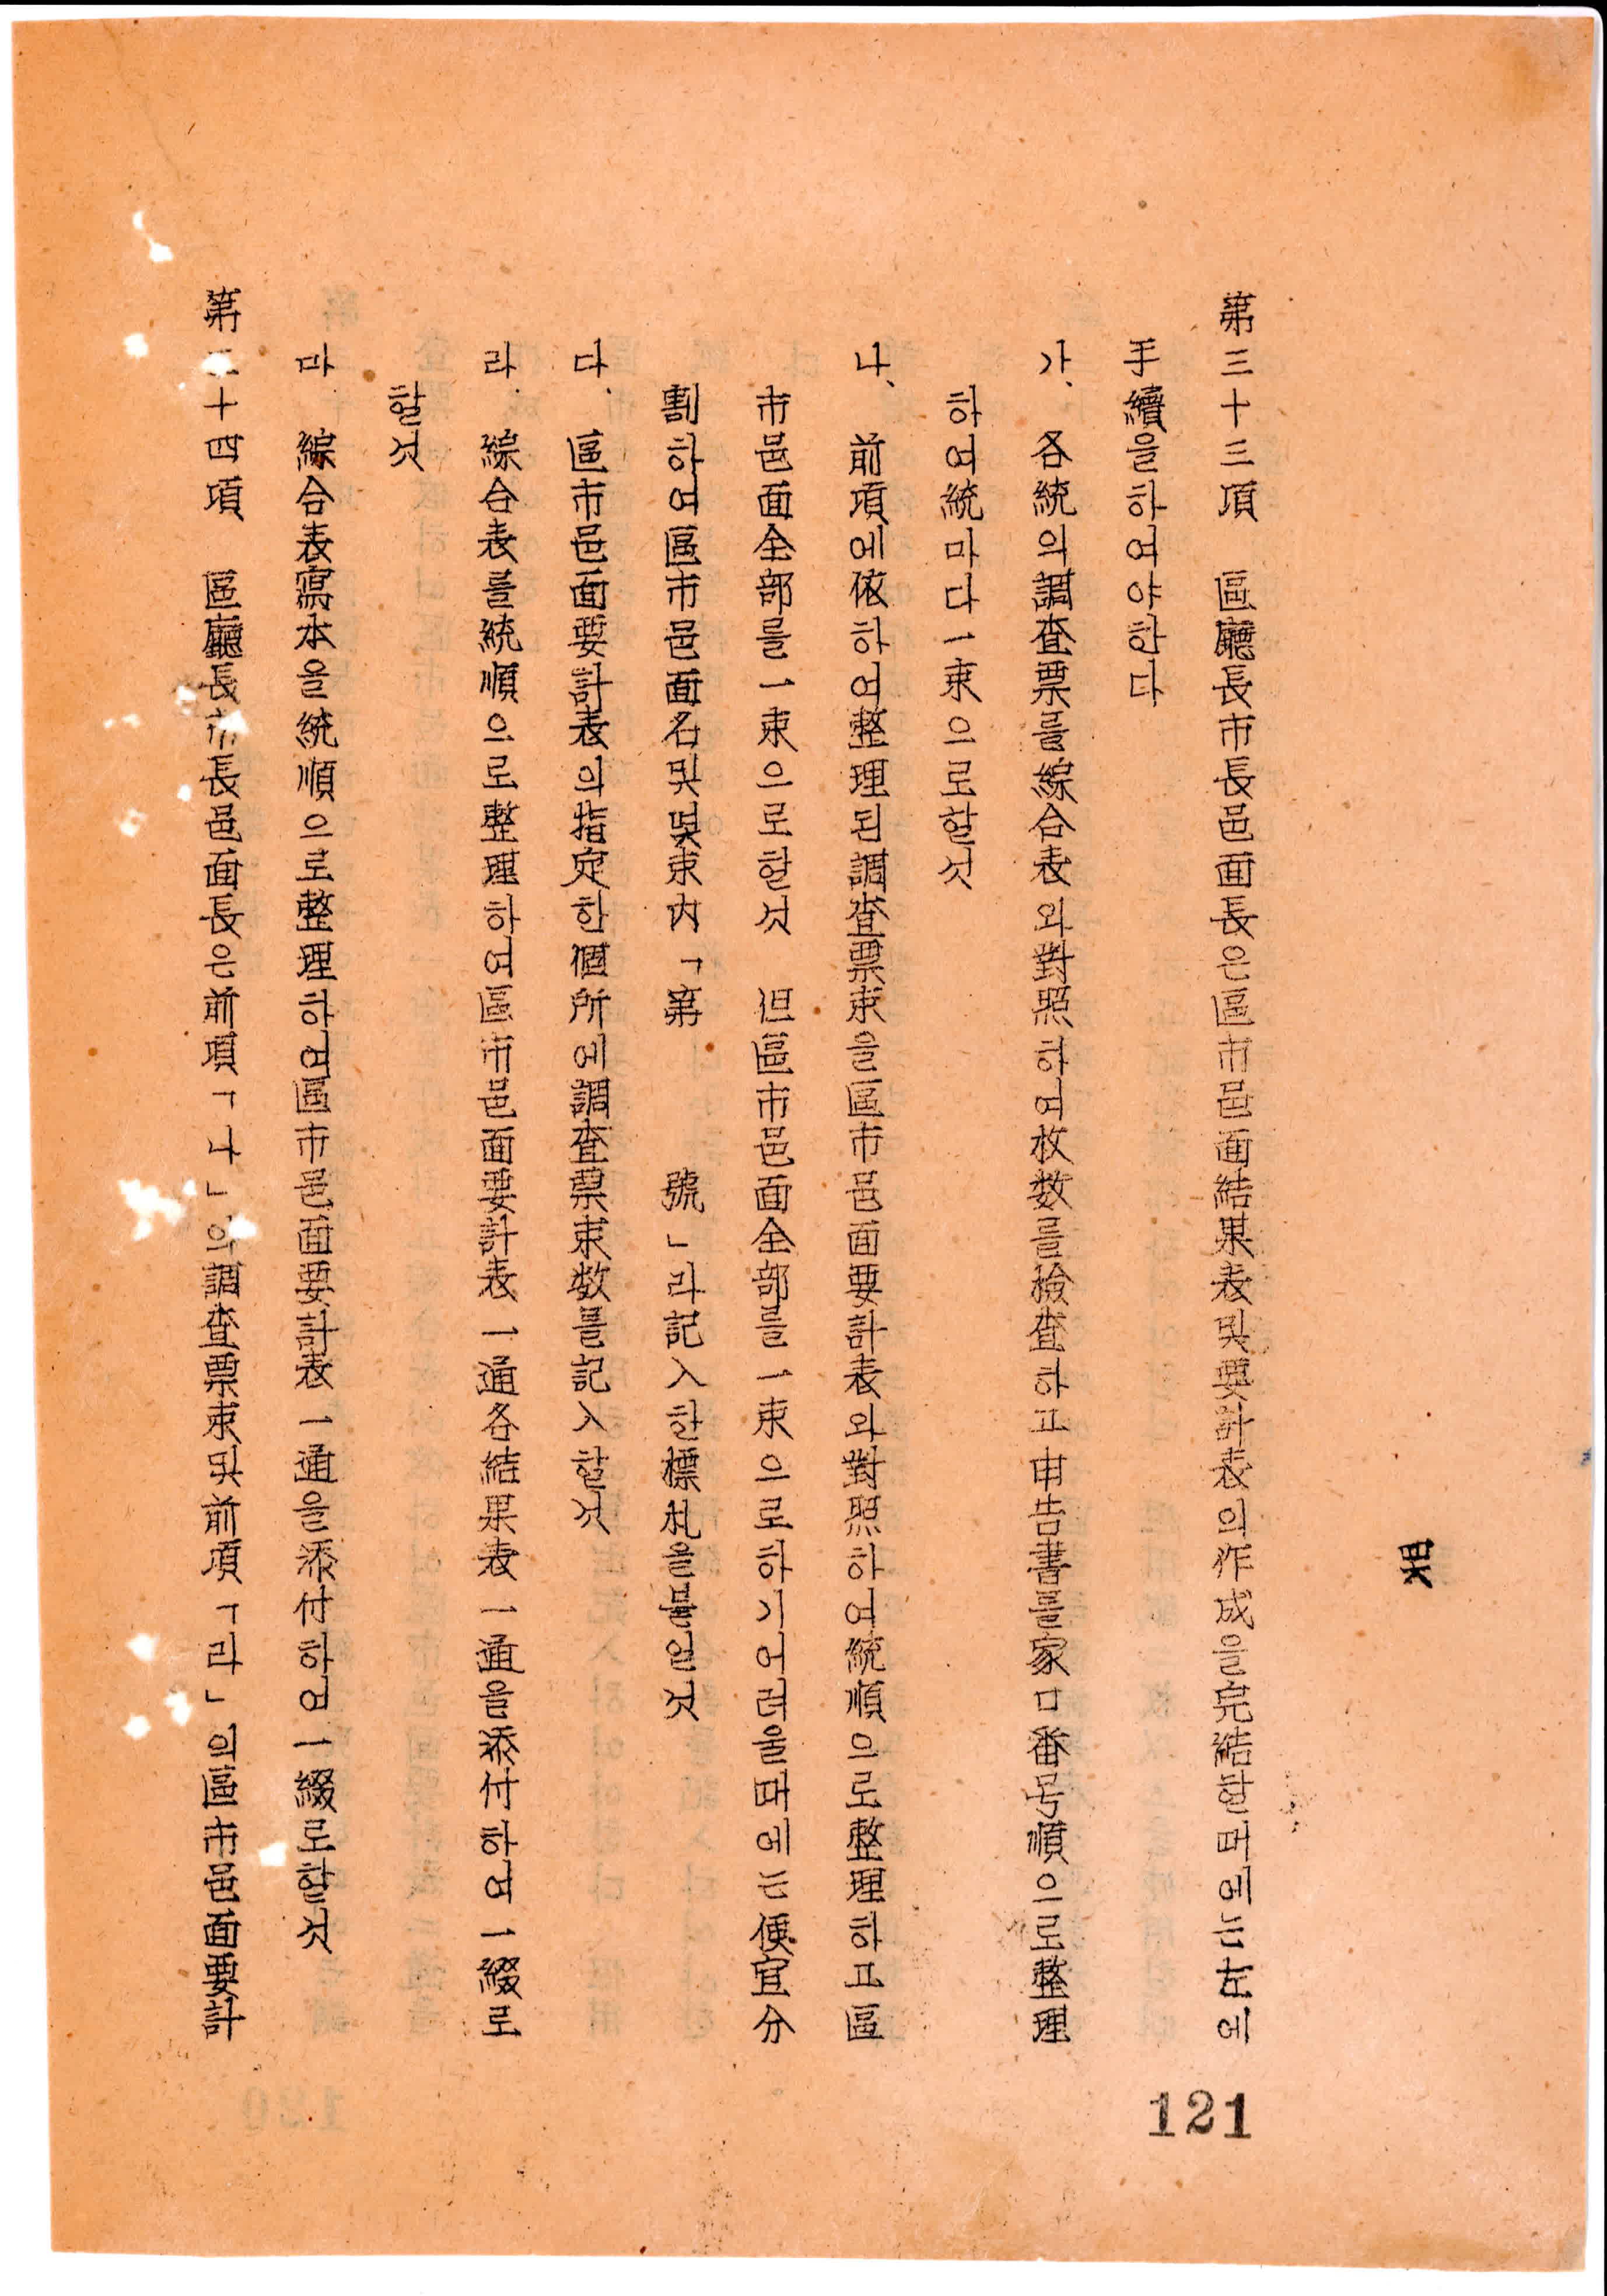 第三十三項 區廳長市長邑面長은區市邑面結果表및要計表의作成을完結한때에는左에
手續을하여야한다
가、 各統의調査票를綜合表와對照하여枚数를檢査하고申告書를家口番号順으로整理
하여統마다一束으로할것
나、 前項에依하여整理된調査票束을區市邑面要計表와對照하여統順으로整理하고區
市邑面全部를一束으로할것 但區市邑面全部를一束으로하기어려울때에는便宜分
割하여區市邑面名및몇束內「第 號」라記入한標札을붙일것
다、 區市邑面要計表의指定한個所에調査票束数를記入할것
라、 綜合表를統順으로整理하여區市邑面要計表一通各結果表一通을添付하여一綴로
할것
마、 綜合表寫本을統順으로整理하여區市邑面要計表一通을添付하여一綴로할것
第三十四項 區廳長市長邑面長은前項「나」의調査票束및前項「라」의區市邑面要計
121